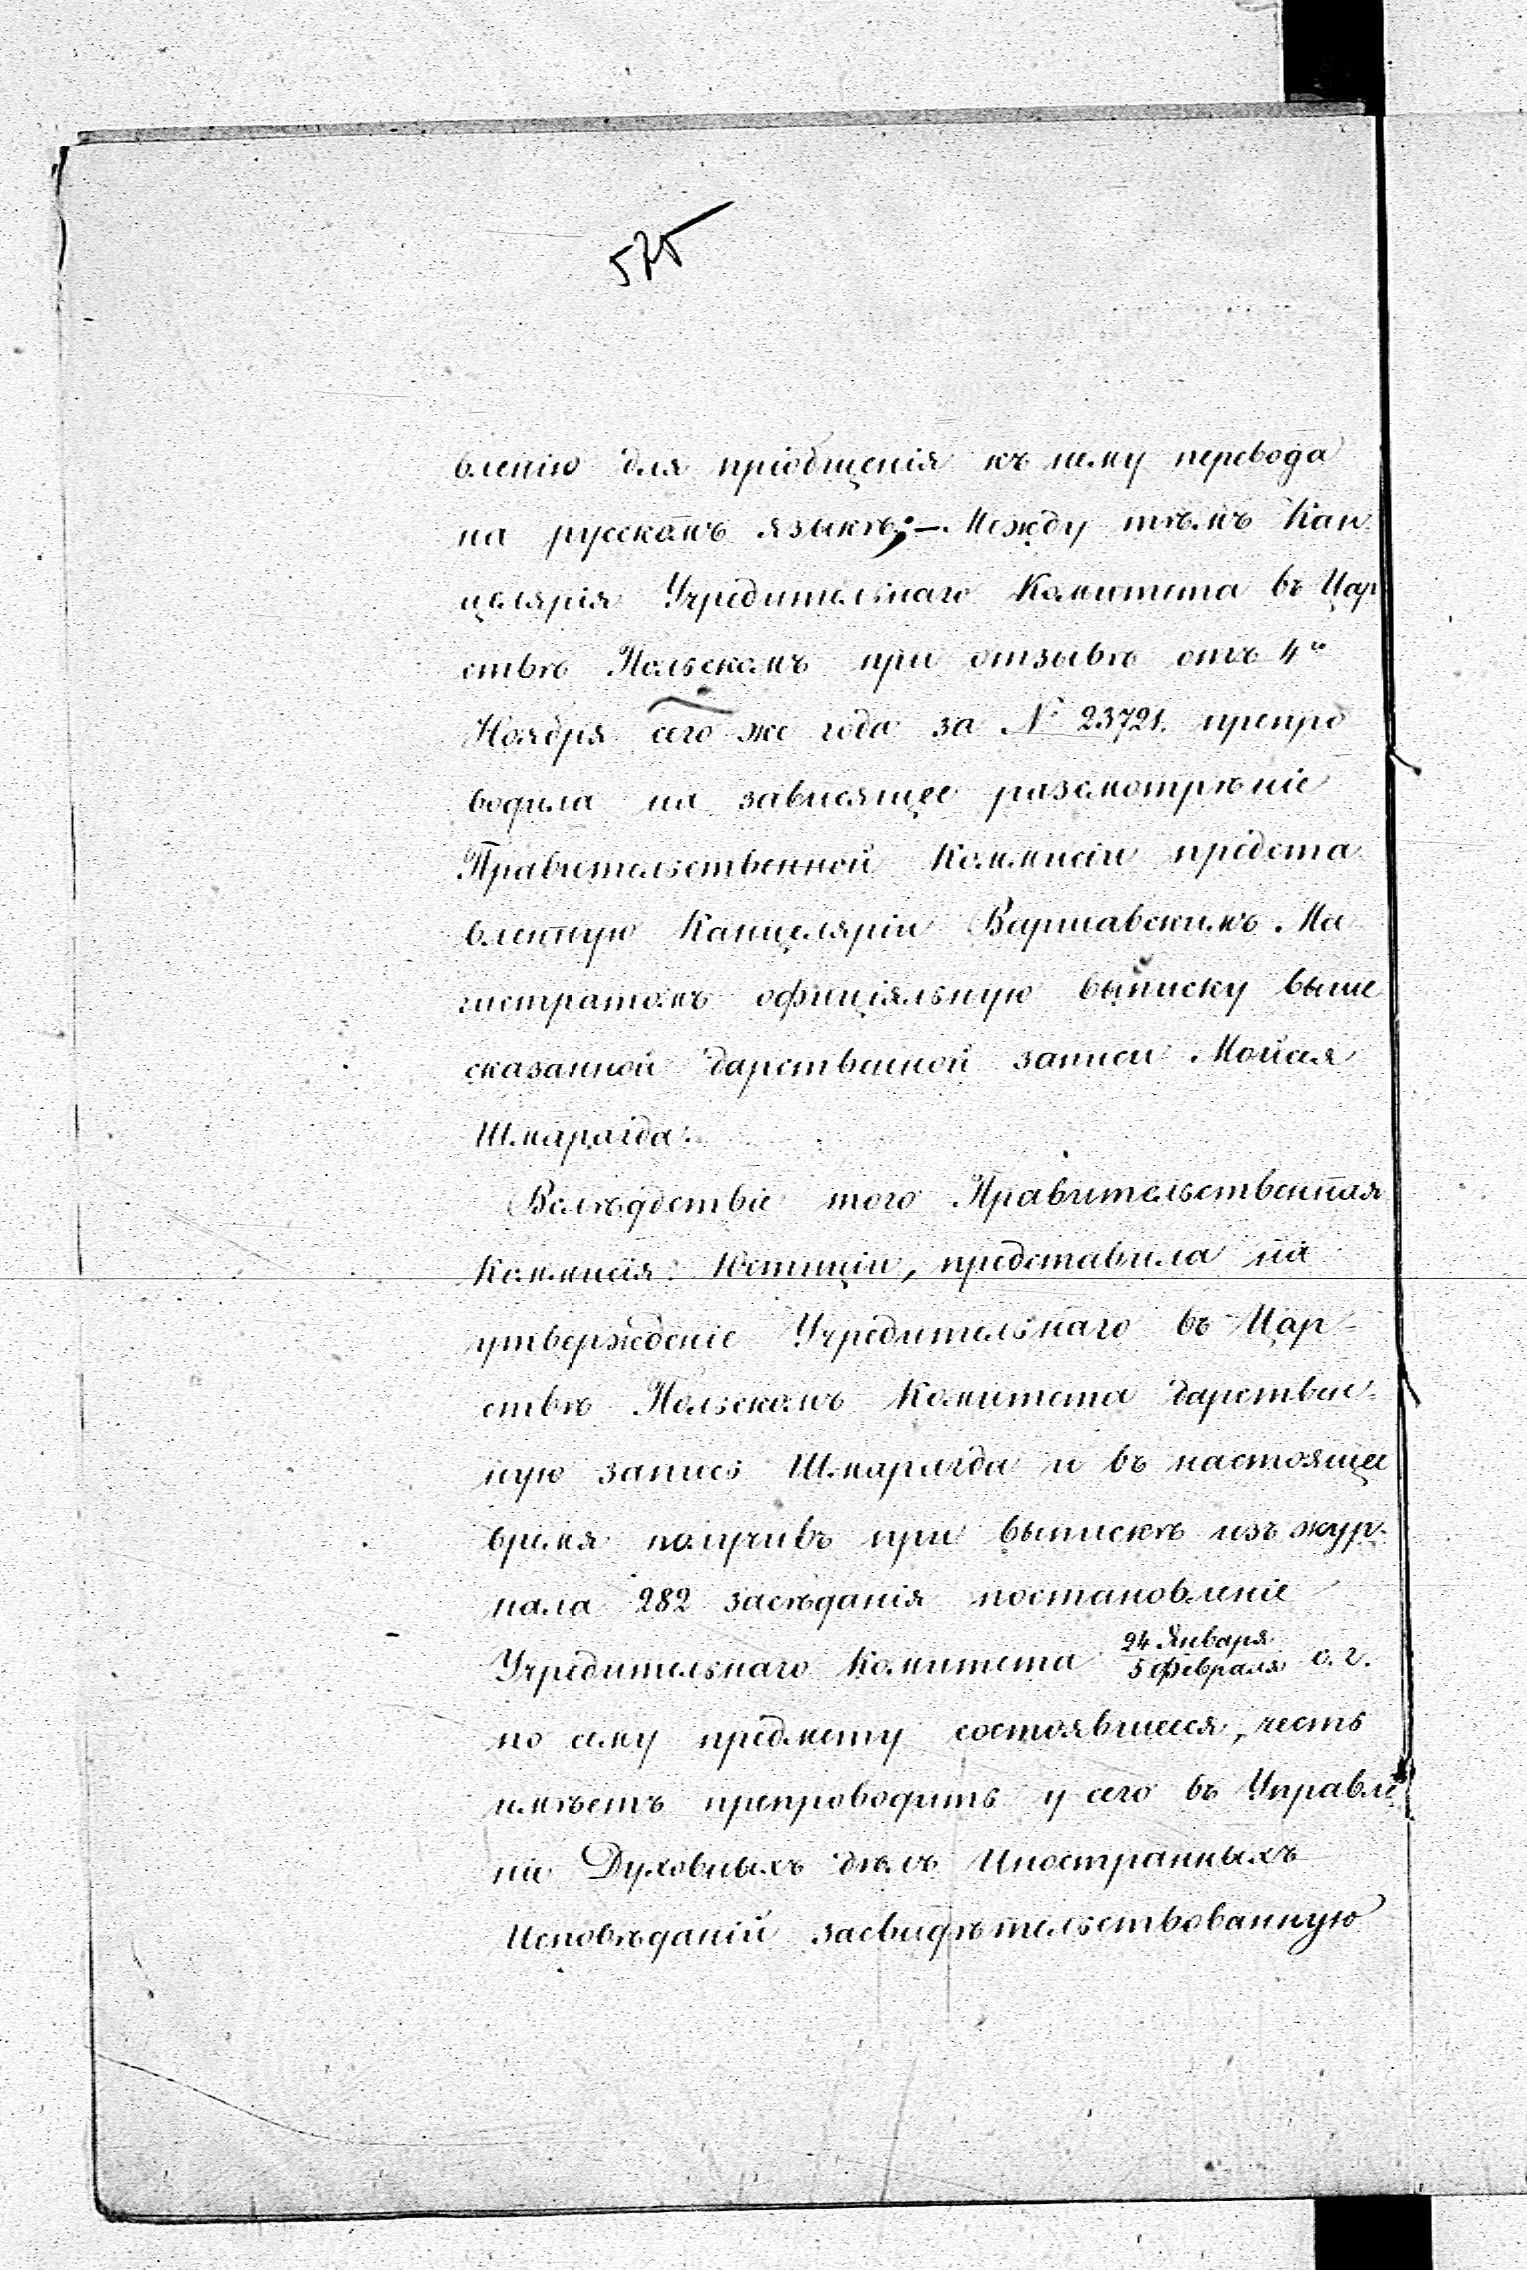 575
вленію для пріобщенія къ нему перевода
на русскомъ языкѣ; — Между тѣмъ Кан
целярія Учредительнаго Комитета въ Цар
ствѣ Польскомъ при отзывѣ отъ 4го
Ноября сего же года за № 23721. препро
водила на зависящее разсмотрѣніе
Правительственной Коммисіи предста
вленную Канцеляріи Варшавскимъ Ма
гистратомъ офиціяльную выписку выше
сказанной дарственной записи Мойсея
Шмарагда.
Вслѣдствіе того Правительственная
Коммисія Юстиціи, представила на
утвержденіе Учредительнаго въ Цар-
ствѣ Польскомъ Комитета дарствен-
ную запись Шмарагда и въ настоящее
время получивъ при выпискѣ изъ жур-
нала 282 засѣданія постановленіе
Учредительнаго Комитета 24 Января / 5 Февраля с. г.
по сему предмету состоявшееся, честь
имѣетъ препроводить у сего въ Управле
ніе Духовныхъ дѣлъ Иностранныхъ
Исповѣданій засвидѣтельствованную